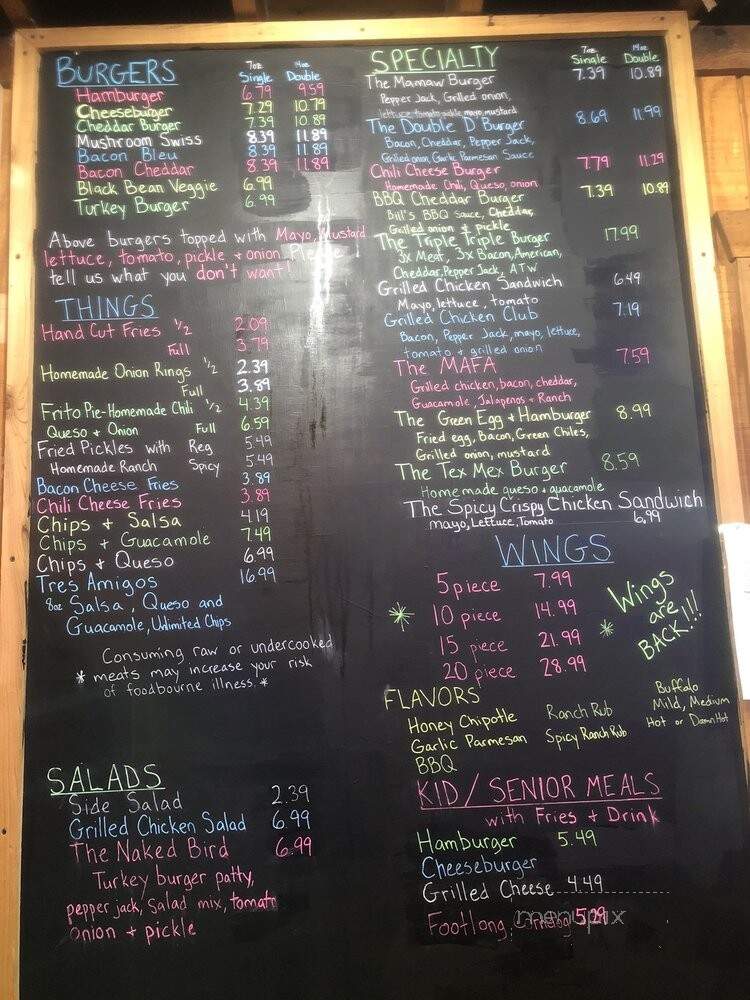 BURGERS
7oz 14oz
Single Double
Hamburger 6.79 9.59
Cheeseburger 7.29 10.79
Cheddar Burger 7.39 10.89
Mushroom Swiss 8.39 11.89
Bacon Bleu 8.39 11.89
Bacon Cheddar 8.39 11.89
Black Bean Veggie 6.99
Turkey Burger 6.99
Above burgers topped with Mayo, Mustard
lettuce, tomato, pickle + onion. Please
tell us what you don't want!
THINGS
Hand Cut Fries 1/2 2.09
Full 3.79
Homemade Onion Rings 1/2 2.39
Full 3.89
Frito Pie-Homemade Chili 1/2 4.39
Queso + Onion Full 6.59
Fried Pickles with Reg 5.49
Homemade Ranch Spicy 5.49
Bacon Cheese Fries 3.89
Chili Cheese Fries 3.89
Chips + Salsa 4.19
Chips + Guacamole 7.49
Chips + Queso 6.99
Tres Amigos 16.99
8oz Salsa, Queso and
Guacamole, Unlimited Chips
Consuming raw or undercooked
* meats may increase your risk
of foodbourne illness. *
SALADS
Side Salad 2.39
Grilled Chicken Salad 6.99
The Naked Bird 6.99
Turkey burger patty,
pepper jack, Salad mix, tomato
onion + pickle
SPECIALTY
7oz 14oz
Single Double
The Mamaw Burger 7.39 10.89
Pepper Jack, Grilled onion,
lettuce, tomato, pickle, mayo, mustard
The Double D Burger 8.69 11.99
Bacon, Cheddar, Pepper Jack,
Grilled onion, Garlic Parmesan Sauce
Chili Cheese Burger 7.79 11.29
Homemade Chili, Queso, onion
BBQ Cheddar Burger 7.39 10.89
Bill's BBQ Sauce, Cheddar,
Grilled onion + pickle
The Triple Triple Burger 17.99
3x Meat, 3x Bacon, American,
Cheddar, Pepper Jack, ATW
Grilled Chicken Sandwich 6.49
Mayo, lettuce, tomato
Grilled Chicken Club 7.19
Bacon, Pepper Jack, mayo, lettuce,
tomato + grilled onion
The MAFA 7.59
Grilled chicken, bacon, cheddar,
Guacamole, Jalapenos + Ranch
The Green Egg + Hamburger 8.99
Fried egg, Bacon, Green Chiles,
Grilled onion, mustard
The Tex Mex Burger 8.59
Homemade queso + guacamole
The Spicy Crispy Chicken Sandwich
mayo, Lettuce, Tomato 6.99
WINGS
5 piece 7.99
10 piece 14.99
15 piece 21.99
20 piece 28.99
* Wings
are
* BACK!!!
FLAVORS
Honey Chipotle Ranch Rub Buffalo
Garlic Parmesan Spicy Ranch Rub Mild, Medium
BBQ Hot or Damn Hot
KID/SENIOR MEALS
with Fries + Drink
Hamburger 5.49
Cheeseburger
Grilled Cheese 4.49
Footlong Corndog 5.29
menupix